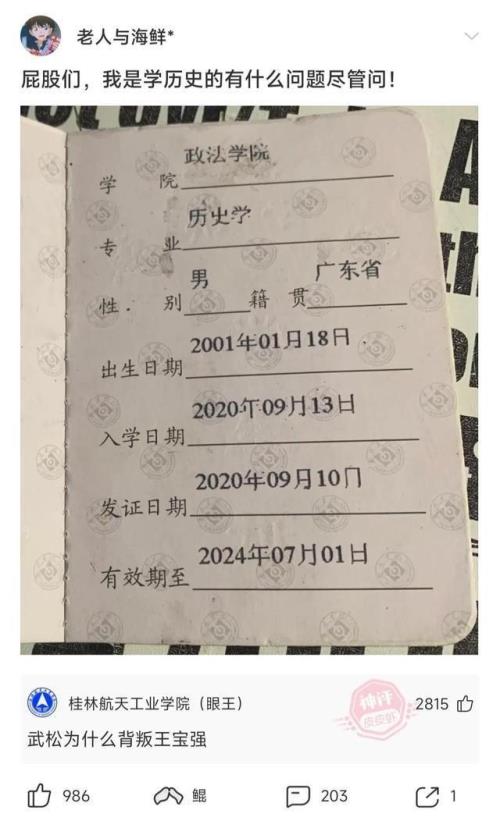 老人与海鲜*
屁股们，我是学历史的有什么问题尽管问！
政法学院
学 院
历史学
专 业
男 广东省
性. 别 籍 贯
2001年01月18日
出生日期
2020年09月13日
入学日期
2020年09月10日
发证日期
2024年07月01日
有效期至
桂林航天工业学院（眼王）
神评
皮皮虾
2815
武松为什么背叛王宝强
986 鲲 203 1